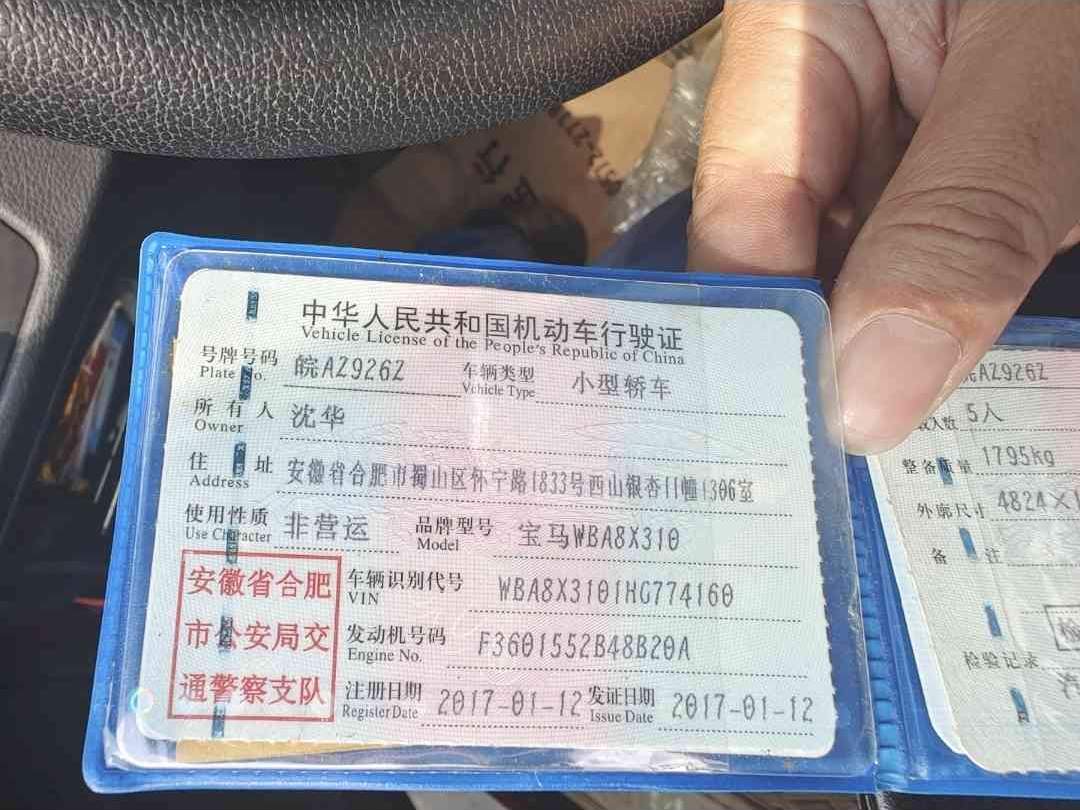 中华人民共和国机动车行驶证
Vehicle License of the People's Republic of China
号牌号码 皖AZ926Z 车辆类型 小型轿车
Plate No. Vehicle Type
所有人 沈华
Owner
住址 安徽省合肥市蜀山区怀宁路1833号西山银杏11幢1306室
Address
使用性质 非营运 品牌型号 宝马WBA8X310
Use Character Model
安徽省合肥
市公安局交
通警察支队
车辆识别代号 WBA8X3101HG774160
VIN
发动机号码 F3601552B48B20A
Engine No.
注册日期 2017-01-12 发证日期 2017-01-12
Register Date Issue Date
AZ926Z
人数 5人
整备质量 1795kg
外廓尺寸 4824×1
备注
检验记录
检
汽